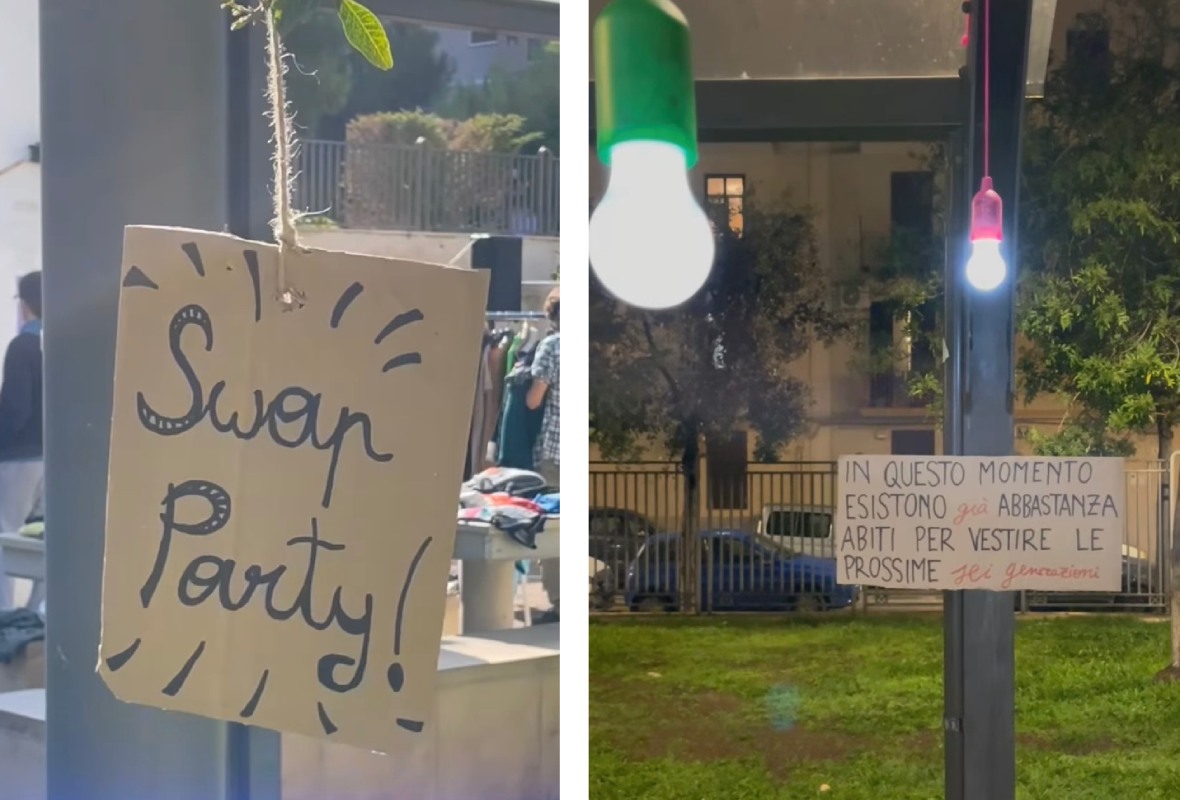 Swap
Party!
IN QUESTO MOMENTO
ESISTONO già ABBASTANZA
ABITI PER VESTIRE LE
PROSSIME sei generazioni